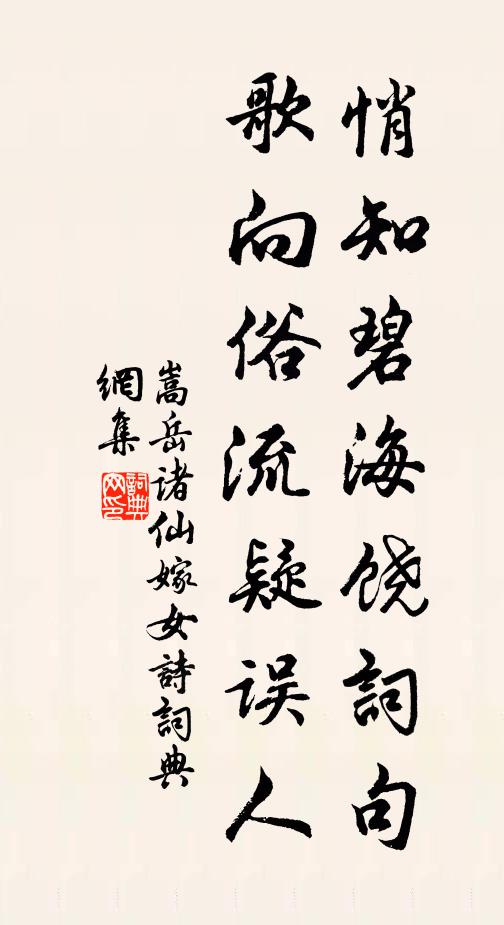 悄知碧海饶詞句
歌向俗流疑误人
嵩岳诸仙嫁女詩詞典
網集
詞典网印